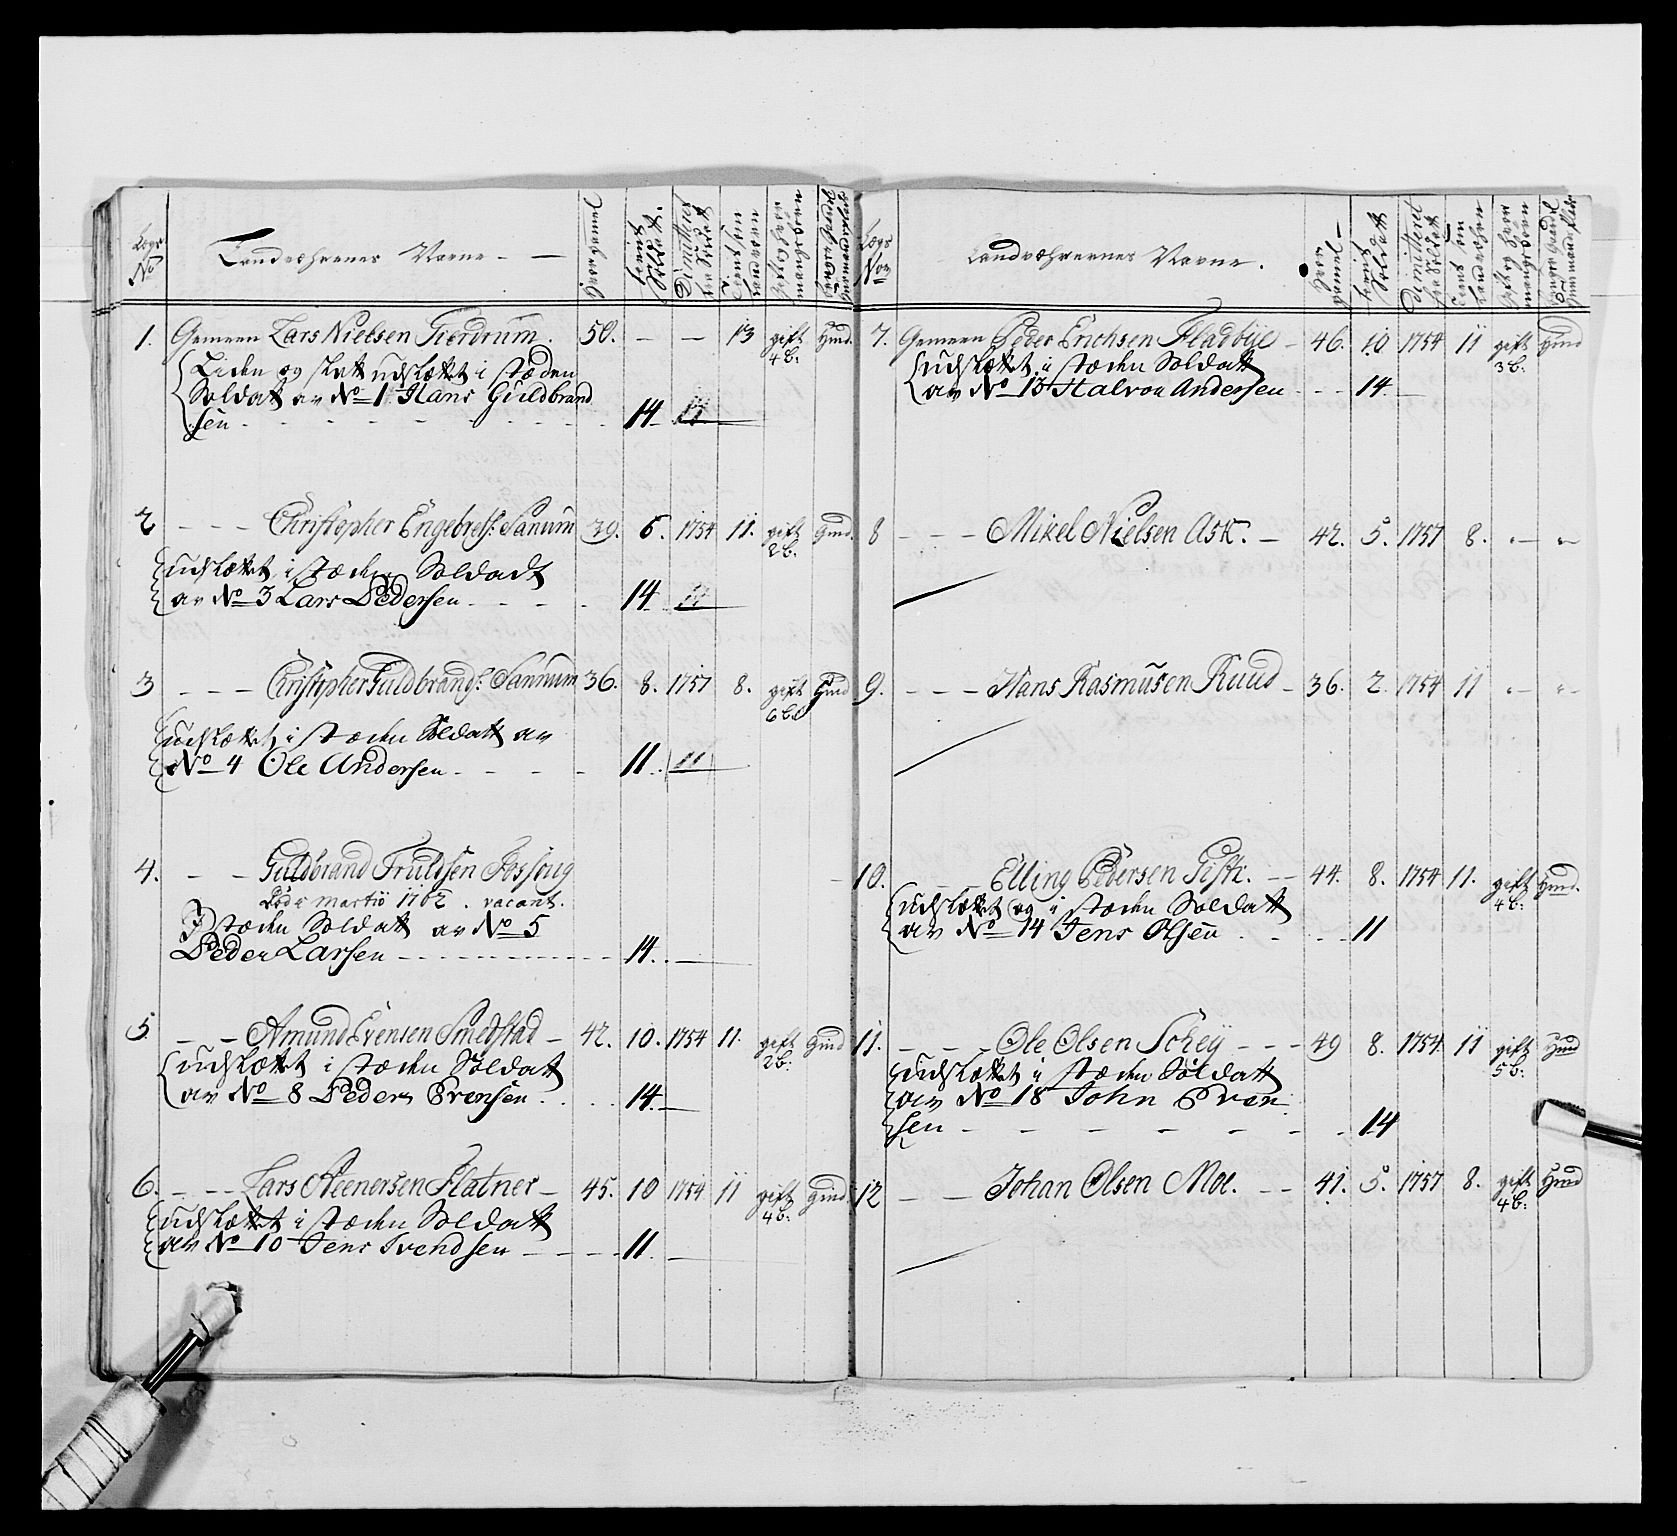 Lægs No
Landvæhrenes Navne
Hvor gammel
tient Soldat
Dimitteret fra Soldat
Tient som Landværn
1. Gemeen Lars Nielsen Gierdrum. 50. — — 13 gift 4 b: Hiind.
udslættet i stæden
Soldat av No 1 Hans Guldbrand
sen 14
2 — — — Christopher Engebrets: Sanum 39. 6. 1754 11. gift 2 b. Hiind.
udslættet i stæden Soldadt
av No 3 Lars Pedersen 14
3 — — — Christopher Guldbrands: Sannum 36. 8. 1757 8. gift 6 b Hiind
udslættet i stæden Soldatt av
No 4 Ole Andersen 11. 11
4. — — Guldbrand Trulsen Jossong
Døde martio 1762. vacant.
I stæden Soldatt av No 5
Peder Larsen 14.
5 — — Amund Evensen Smedstad — 42. 10. 1754 11. gift 2 b: Hiind
udslættet i stæden Soldatt
av No 8 Peder Evensen 14.
6. — — Lars Steenersen Flatner — 45. 10 1754 11 gift 4 b: Hiind
udslættet i stæden Soldatt
av No 10 Jens Svendsen 11.
Lægs Nor
Landvæhrernes Navne.
Hvor gammel
tient Soldatt
Dimitteret fra Soldat
Tient som Landvæhrn
7. Gemeen Peder Erichsen Fladbye — 46. 10 1754 11 gift 3 b. Hiind
udslættet i stæden Soldatt
av No 13 Halvor Andersen 14.
8 — — — Mikel Nielsen Ask. — 42. 5. 1757 8. — —
9. — — — Hans Rasmusen Ruud — 36. 2. 1754 11 — —
10. — — Elling Pedersen Gistr. — 44. 8. 1754 11. gift 4 b: Hiind.
udslættet og i stæden Soldatt
av No 14 Jens Olsen 11
11. — — — Ole Olsen Schey — — — 49 8. 1754 11 gift 5 b: Hiind
udslættet i stæden Soldatt
av No 18 John Even
sen 14
12 — — Johan Olsen Moe. — — 41. 5. 1757 8. gift 4 b: Hiind